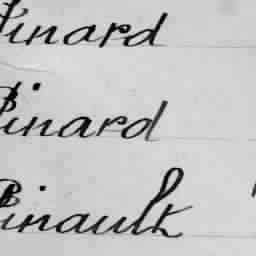 Pinard
Pinard
Pinault